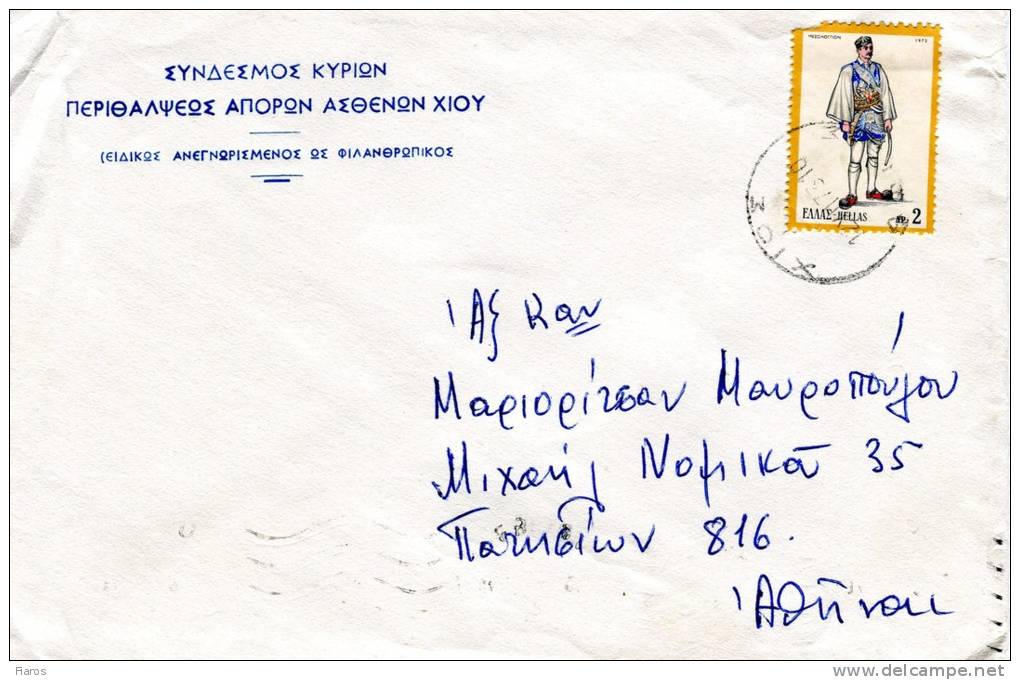 ΣΥΝΔΕΣΜΟΣ ΚΥΡΙΩΝ
ΠΕΡΙΘΑΛΨΕΩΣ ΑΠΟΡΩΝ ΑΣΘΕΝΩΝ ΧΙΟΥ
(ΕΙΔΙΚΩΣ ΑΝΕΓΝΩΡΙΣΜΕΝΟΣ ΩΣ ΦΙΛΑΝΘΡΩΠΙΚΟΣ
ΜΕΣΟΛΟΓΓΙΟΝ 1972
ΕΛΛΑΣ-HELLAS ΔΡ. 2
ΧΙΟΣ
Ἀξ Καν
Μαριορίτσαν Μαυροπούλου
Μιχαήλ Νομικοῦ 35
Πατησίων 816.
Ἀθήναι
Raros
www.delcampe.net